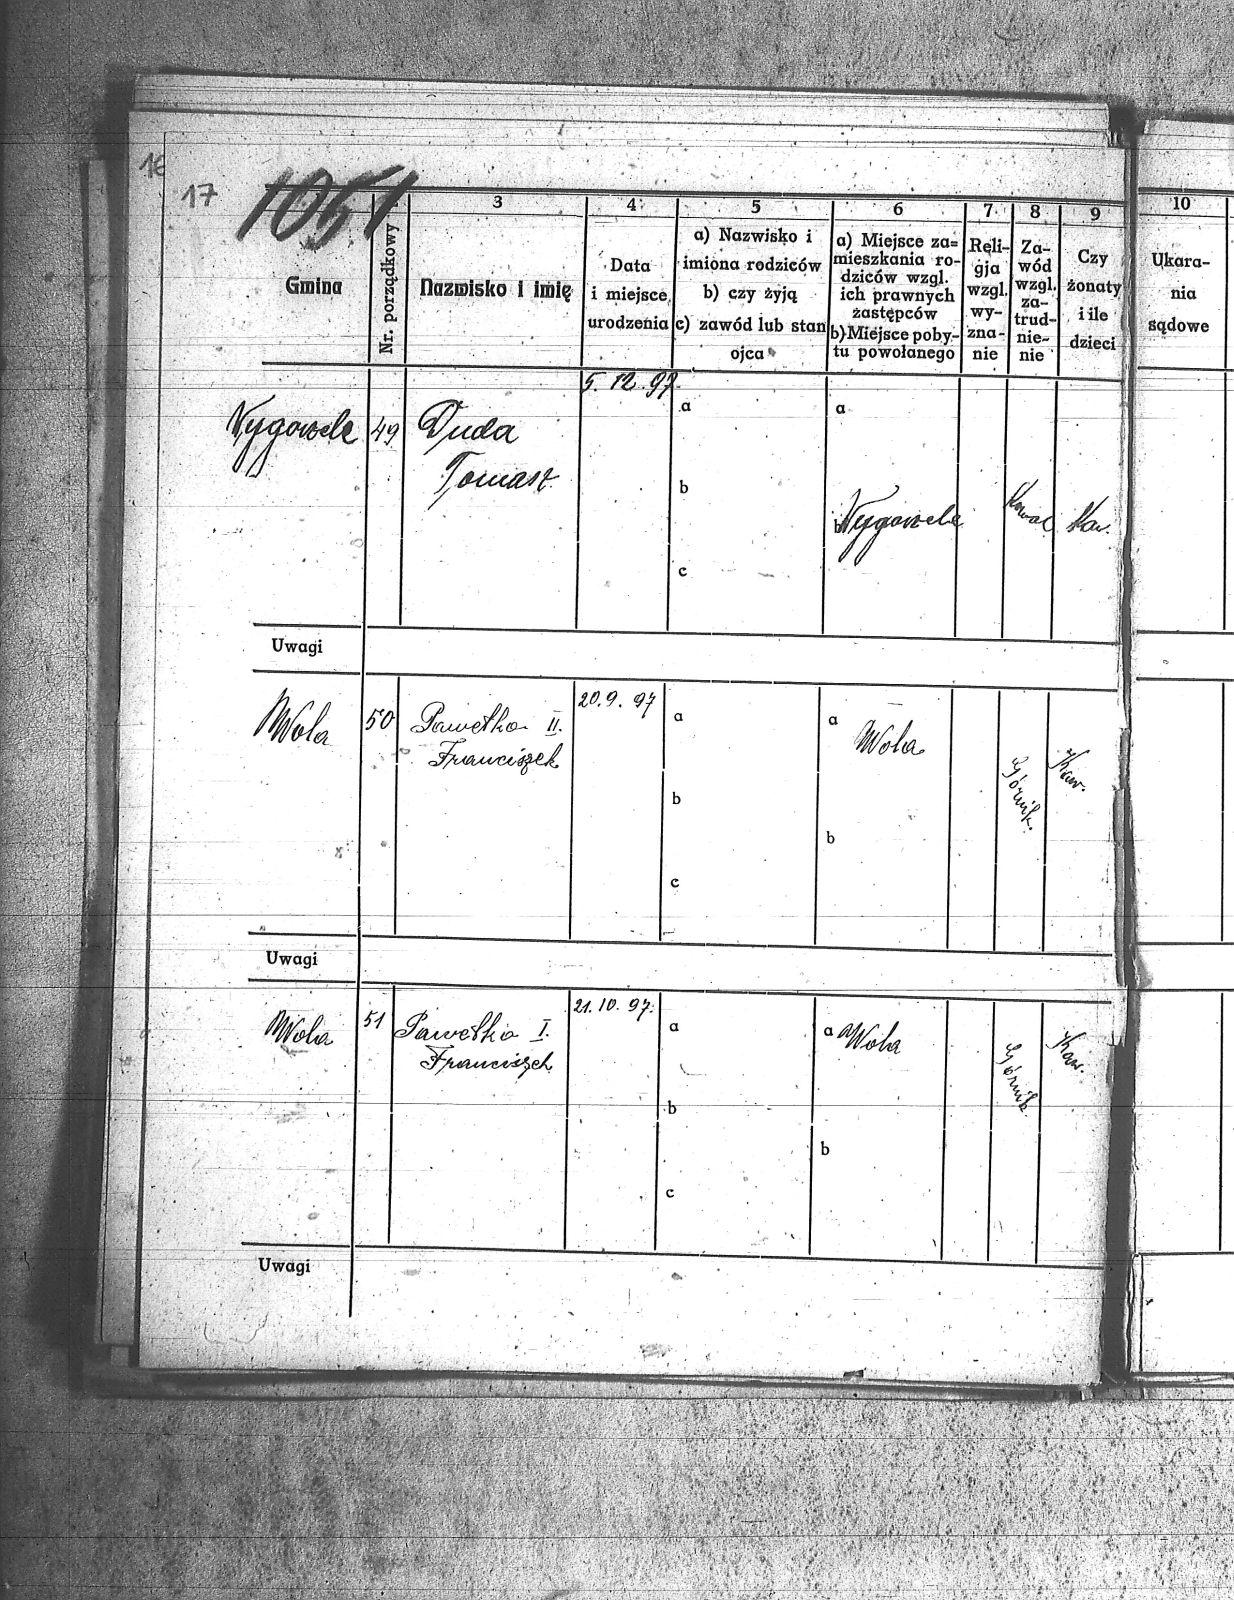 16
17
1051
3 4 5 6 7 8 9 10
Gmina
Nr. porządkowy
Nazwisko i imię
Data
i miejsce
urodzenia
a) Nazwisko i
imiona rodziców
b) czy żyją
c) zawód lub stan
ojca
a) Miejsce za=
mieszkania ro-
dziców wzgl.
ich prawnych
zastępców
b) Miejsce poby-
tu powołanego
Reli-
gja
wzgl.
wy-
zna-
nie
Za-
wód
wzgl.
za-
trud-
nie-
nie
Czy
żonaty
i ile
dzieci
Ukara-
nia
sądowe
5. 12. 97.
49 Duda
Tomasz
a
b
c
a
b
Kowal
Kaw.
Uwagi
Wola 50 Pawełko II.
Franciszek
20. 9. 97
a
b
c
a Wola
b
Górnik.
Kaw.
Uwagi
Wola 51 Pawełko I.
Franciszek
21. 10. 97.
a
b
c
a Wola
b
Górnik
Kaw.
Uwagi